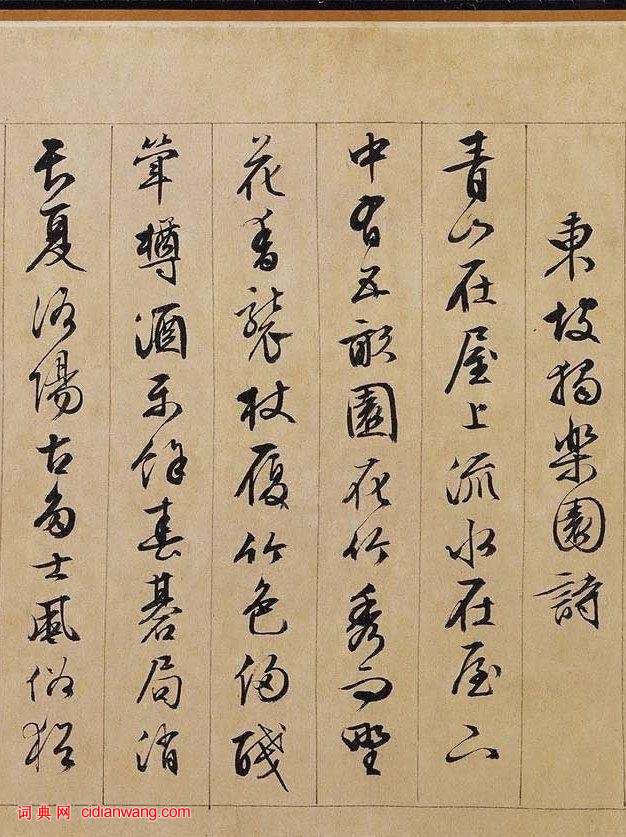 東坡獨樂園詩
青山在屋上流水在屋下
中有五畝園花竹秀而野
花香襲杖履竹色侵醆
斝樽酒樂餘春碁局消
長夏洛陽古多士風俗猶
词典网 cidianwang.com